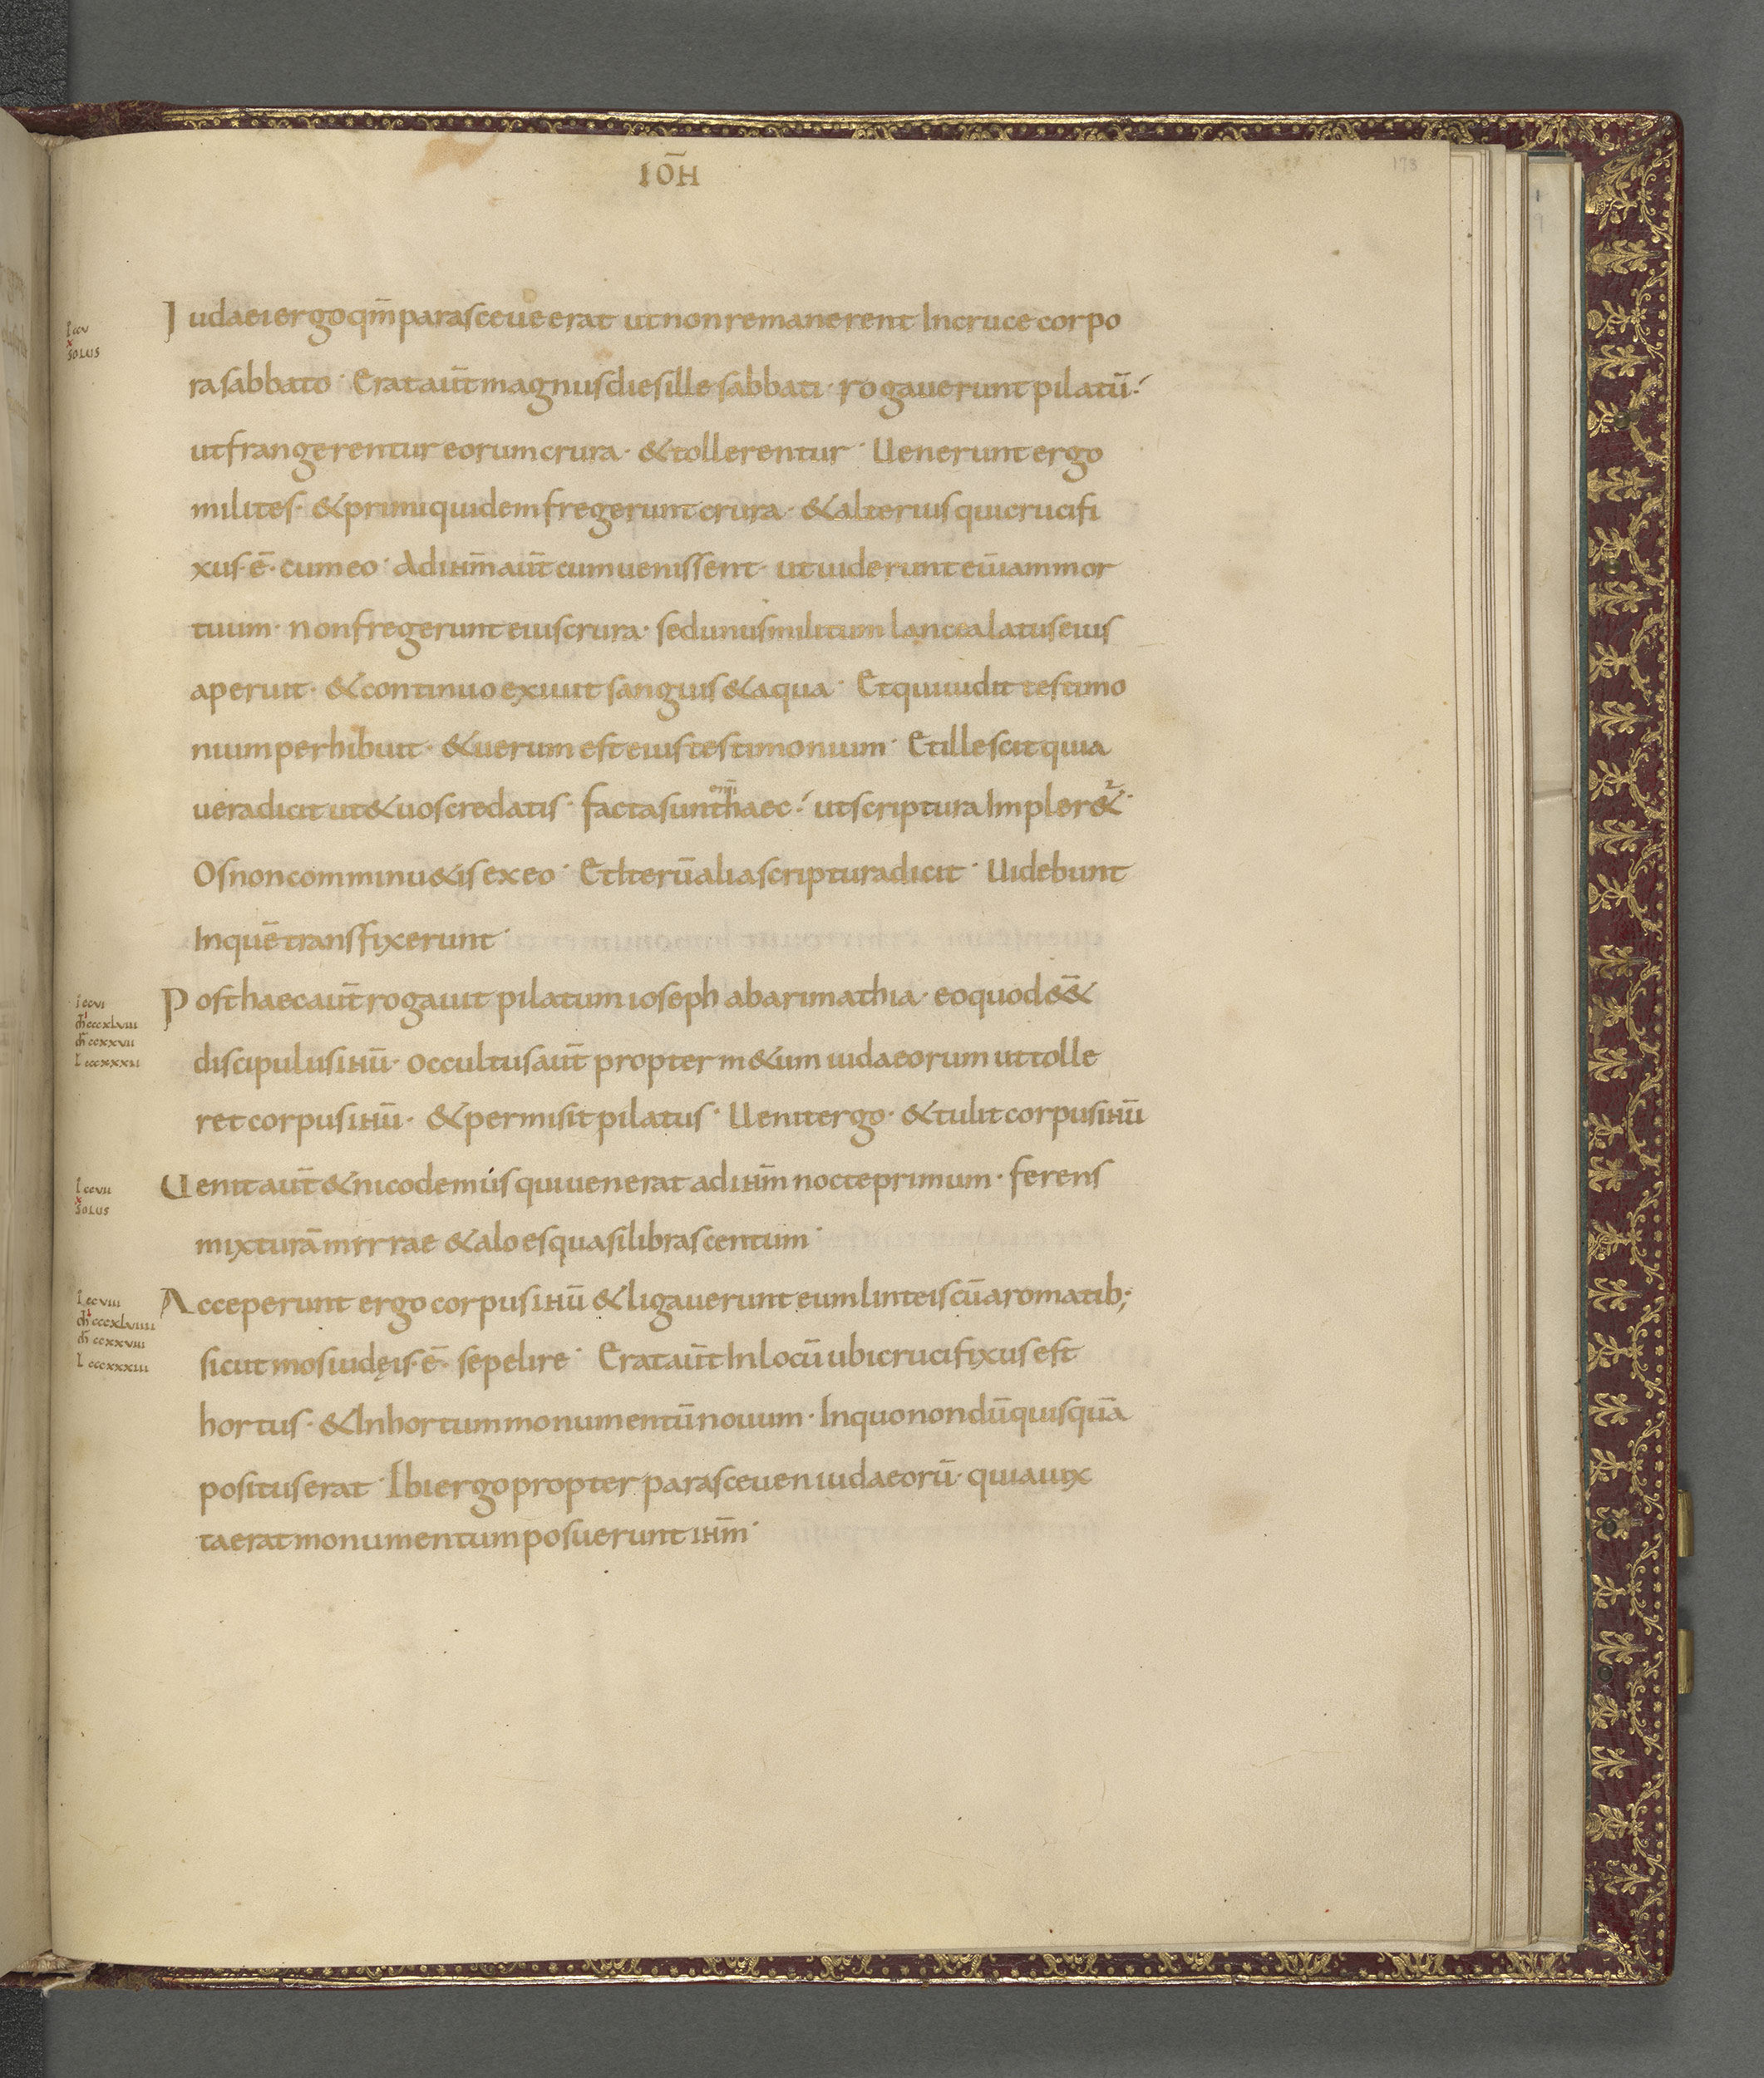 IOH̄
173
I ccv
x
SOLUS
Iudaei ergo qm̄ parasceue erat ut non remanerent In cruce corpo
ra sabbato· Erat aūt magnus dies ille sabbati· rogauerunt pilatū·
ut frangerentur eorum crura· & tollerentur· Uenerunt ergo
milites· & primi quidem fregerunt crura· & alterius qui crucifi
xus· ē· cum eo· Ad ihm̄ aūt cum uenissent· ut uiderunt eū iam mor
tuum· non fregerunt eius crura· sed unus militum lancea latus eius
aperuit· & continuo exiuit sanguis & aqua· Et qui uidit testimo
nium perhibuit· & uerum est eius testimonium· Et ille scit quia
uera dicit ut & uos credatis· facta sunt eni haec· ut scriptura Impler&ʳ·
Os non comminu&is ex eo· Et Iterū alia scriptura dicit· Uidebunt
In quē transfixerunt·
I ccvi
m̄ cccxlviii
m̄ ccxxvii
l cccxxxii
Post haec aūt rogauit pilatum ioseph ab arimathia· eo quod e&̄
discipulus ihū· occultus aūt propter m&um iudaeorum ut tolle
ret corpus ihū· & permisit pilatus· Uenit ergo· & tulit corpus ihū
I ccvii
x
SOLUS
Uenit aūt & nicodemus qui uenerat ad ihm̄ nocte primum· ferens
mixturā mirrae & aloes quasi libras centum·
I ccviii
m̄ cccxlviiii
m̄ ccxxviii
l cccxxxiii
Acceperunt ergo corpus ihū & ligauerunt eum linteis cū aromatib;
sicut mos iudęis· ē· sepelire· Erat aūt In locū ubi crucifixus est
hortus· & In hortum monumentū nouum· In quo nondū quisquā
positus erat· Ibi ergo propter parasceuen iudaeorū· quia iux
ta erat monumentum posuerunt ihm̄·